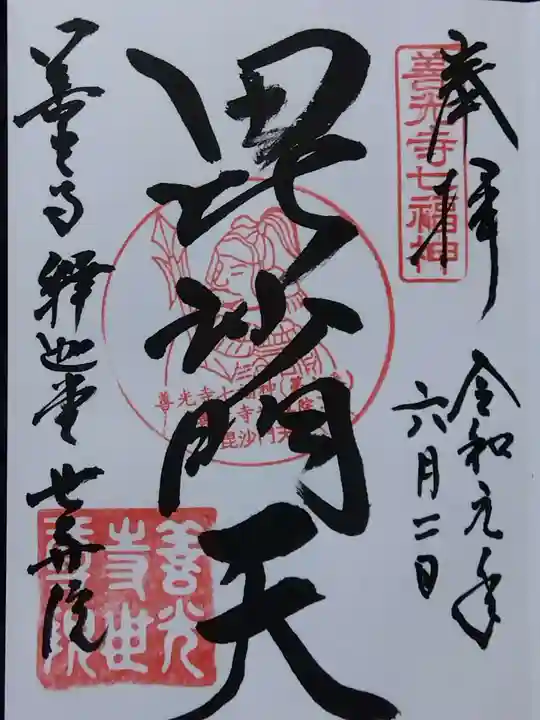 奉拝
善光寺七福神
令和元年
六月二日
毘沙門天
善光寺七福神
毘沙門天
善光寺釋迦堂 世尊院
善光
寺世
尊院